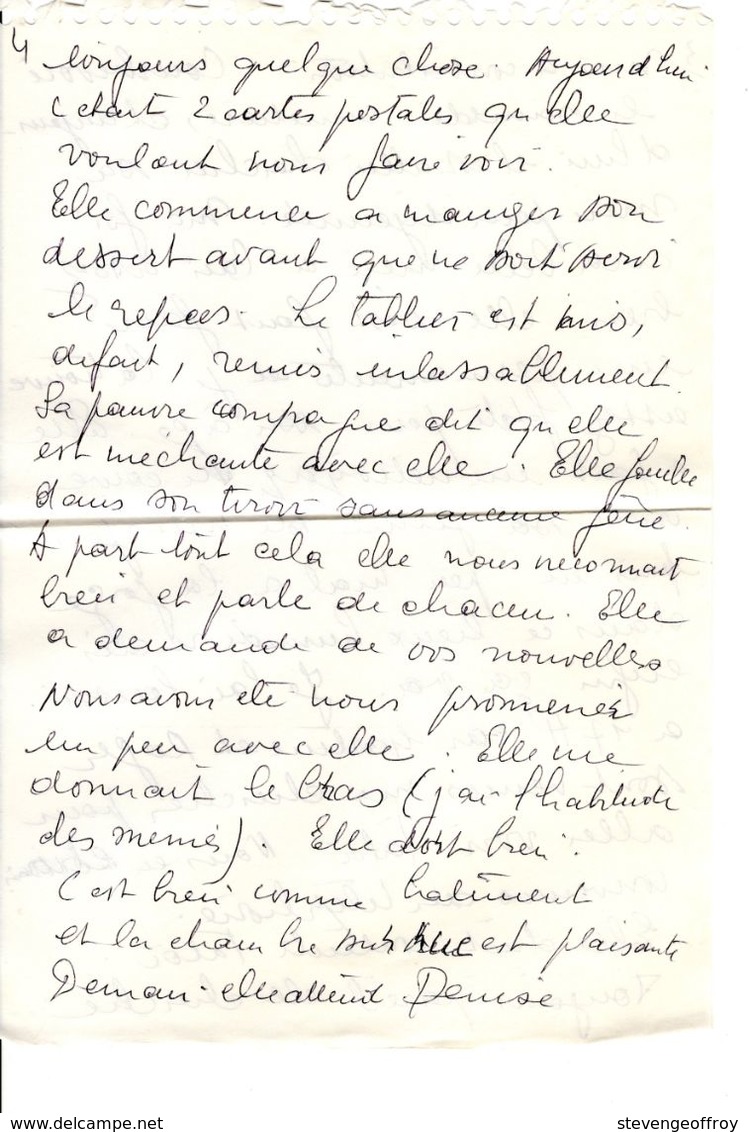 4
toujours quelque chose. Aujourd'hui
c'etait 2 cartes postales qu'elle
voulait nous faire voir.
Elle commence a manger son
dessert avant que ne soit servi
le repas. Le tablier est mis,
defait, remis inlassablement.
Sa pauvre compagne dit qu'elle
est mechante avec elle. Elle fouille
dans son tiroir sans aucune gêne.
A part tout cela elle nous reconnait
bien et parle de chacun. Elle
a demande de vos nouvelles
Nous avons ete nous promener
un peu avec elle. Elle me
donnait le bras (j'ai l'habitude
des memes). Elle dort bien.
C'est bien comme batiment
et la chambre sur rue est plaisante
Demain elle attend Denise
Delcampe.net
stevengeoffroy